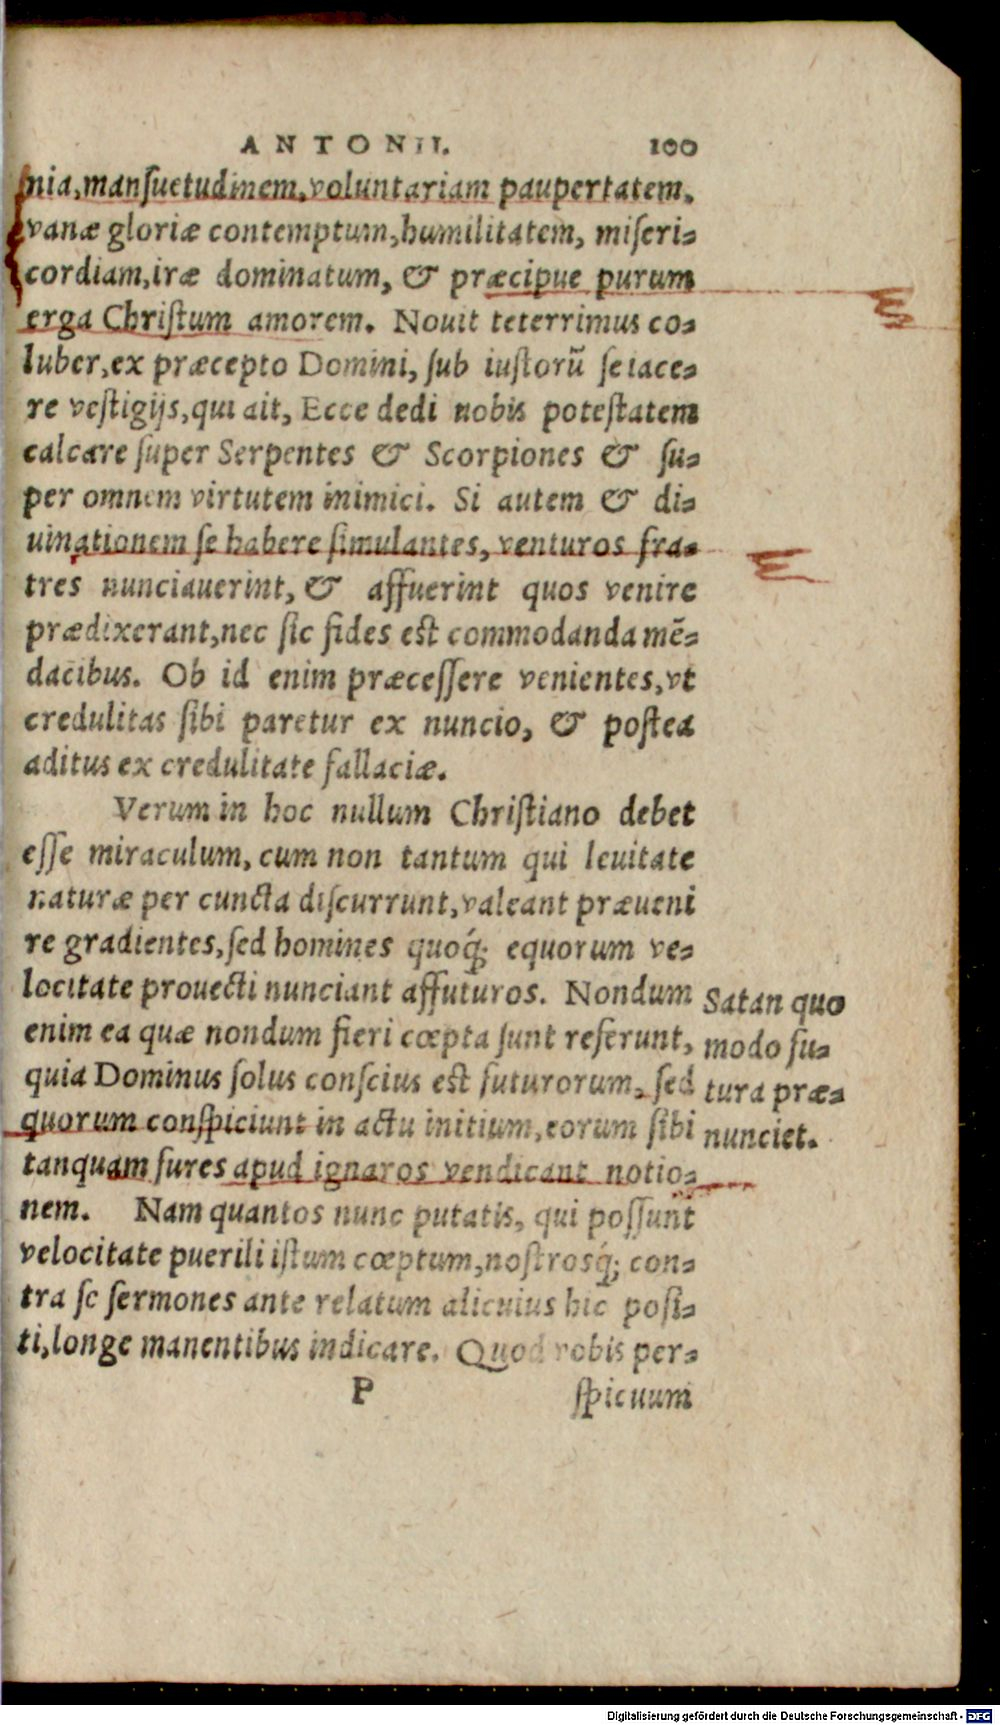 ANTONII. 100
nia, mansuetudinem, voluntariam paupertatem,
vanæ gloriæ contemptum, humilitatem, miseri-
cordiam, iræ dominatum, & præcipue purum
erga Christum amorem. Nouit teterrimus co-
luber, ex præcepto Domini, sub iustorũ se iace-
re vestigijs, qui ait, Ecce dedi nobis potestatem
calcare super Serpentes & Scorpiones & su-
per omnem virtutem inimici. Si autem & di-
uinationem se habere simulantes, venturos fra-
tres nunciauerint, & affuerint quos venire
prædixerant, nec sic fides est commodanda mẽ-
dacibus. Ob id enim præcessere venientes, vt
credulitas sibi paretur ex nuncio, & postea
aditus ex credulitate fallaciæ.
Verum in hoc nullum Christiano debet
esse miraculum, cum non tantum qui leuitate
naturæ per cuncta discurrunt, valeant præueni
re gradientes, sed homines quoq́; equorum ve-
locitate prouecti nunciant affuturos. Nondum
enim ea quæ nondum fieri cœpta sunt referunt,
quia Dominus solus conscius est futurorum, sed
quorum conspiciunt in actu initium, eorum sibi
tanquam fures apud ignaros vendicant notio-
nem. Nam quantos nunc putatis, qui possunt
velocitate puerili istum cœptum, nostrosq́; con-
tra se sermones ante relatum alicuius hic posi-
ti, longe manentibus indicare. Quod vobis per-
P spicuum
Satan quo
modo fu-
tura præ-
nunciet.
Digitalisierung gefördert durch die Deutsche Forschungsgemeinschaft - DFG